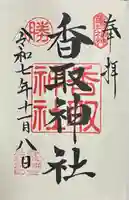 奉拝
香取神社
令和七年十一月八日
勝
香取神社